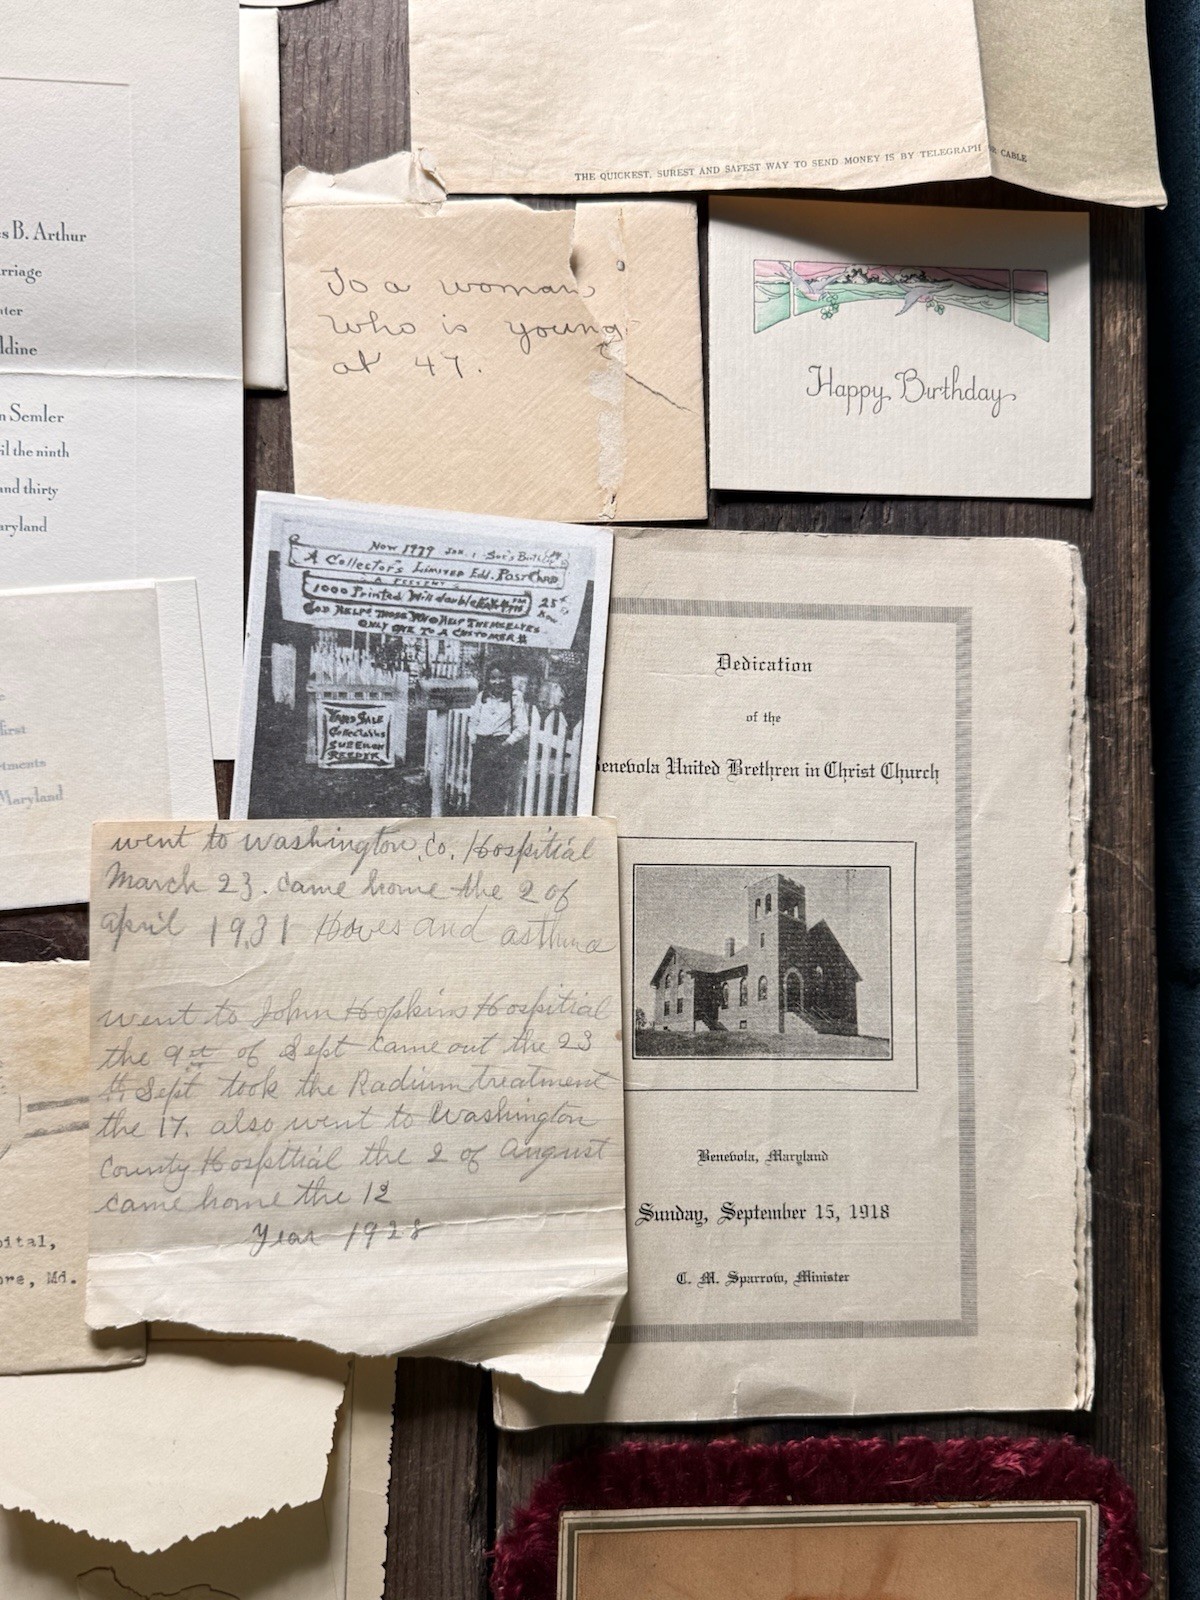 THE QUICKEST, SUREST AND SAFEST WAY TO SEND MONEY IS BY TELEGRAPH OR CABLE
s B. Arthur
rriage
ter
ldine
n Semler
il the ninth
and thirty
aryland
To a woman
who is young
at 47.
Happy Birthday
Now 1979 Jan. 1 Sue's Birth
A Collector's Limited Edd. Post Card
A PRESENT
1000 Printed Will double
25¢
Now
GOD HELPS THOSE WHO HELP THEMSELVES
ONLY ONE TO A CUSTOMER
YARD SALE
Collectables
SUEELLEN
REEDER
Dedication
of the
Benevola United Brethren in Christ Church
Benevola, Maryland
Sunday, September 15, 1918
C. M. Sparrow, Minister
first
rtments
Maryland
went to Washington Co. Hospitial
March 23. came home the 2 of
april 1931 Hoves and asthma
went to John Hopkins Hospitial
the 9st of Sept came out the 23
th Sept took the Radium treatment
the 17. also went to Washington
County Hospittial the 2 of august
came home the 12
Year 1928
pital,
ore, Md.